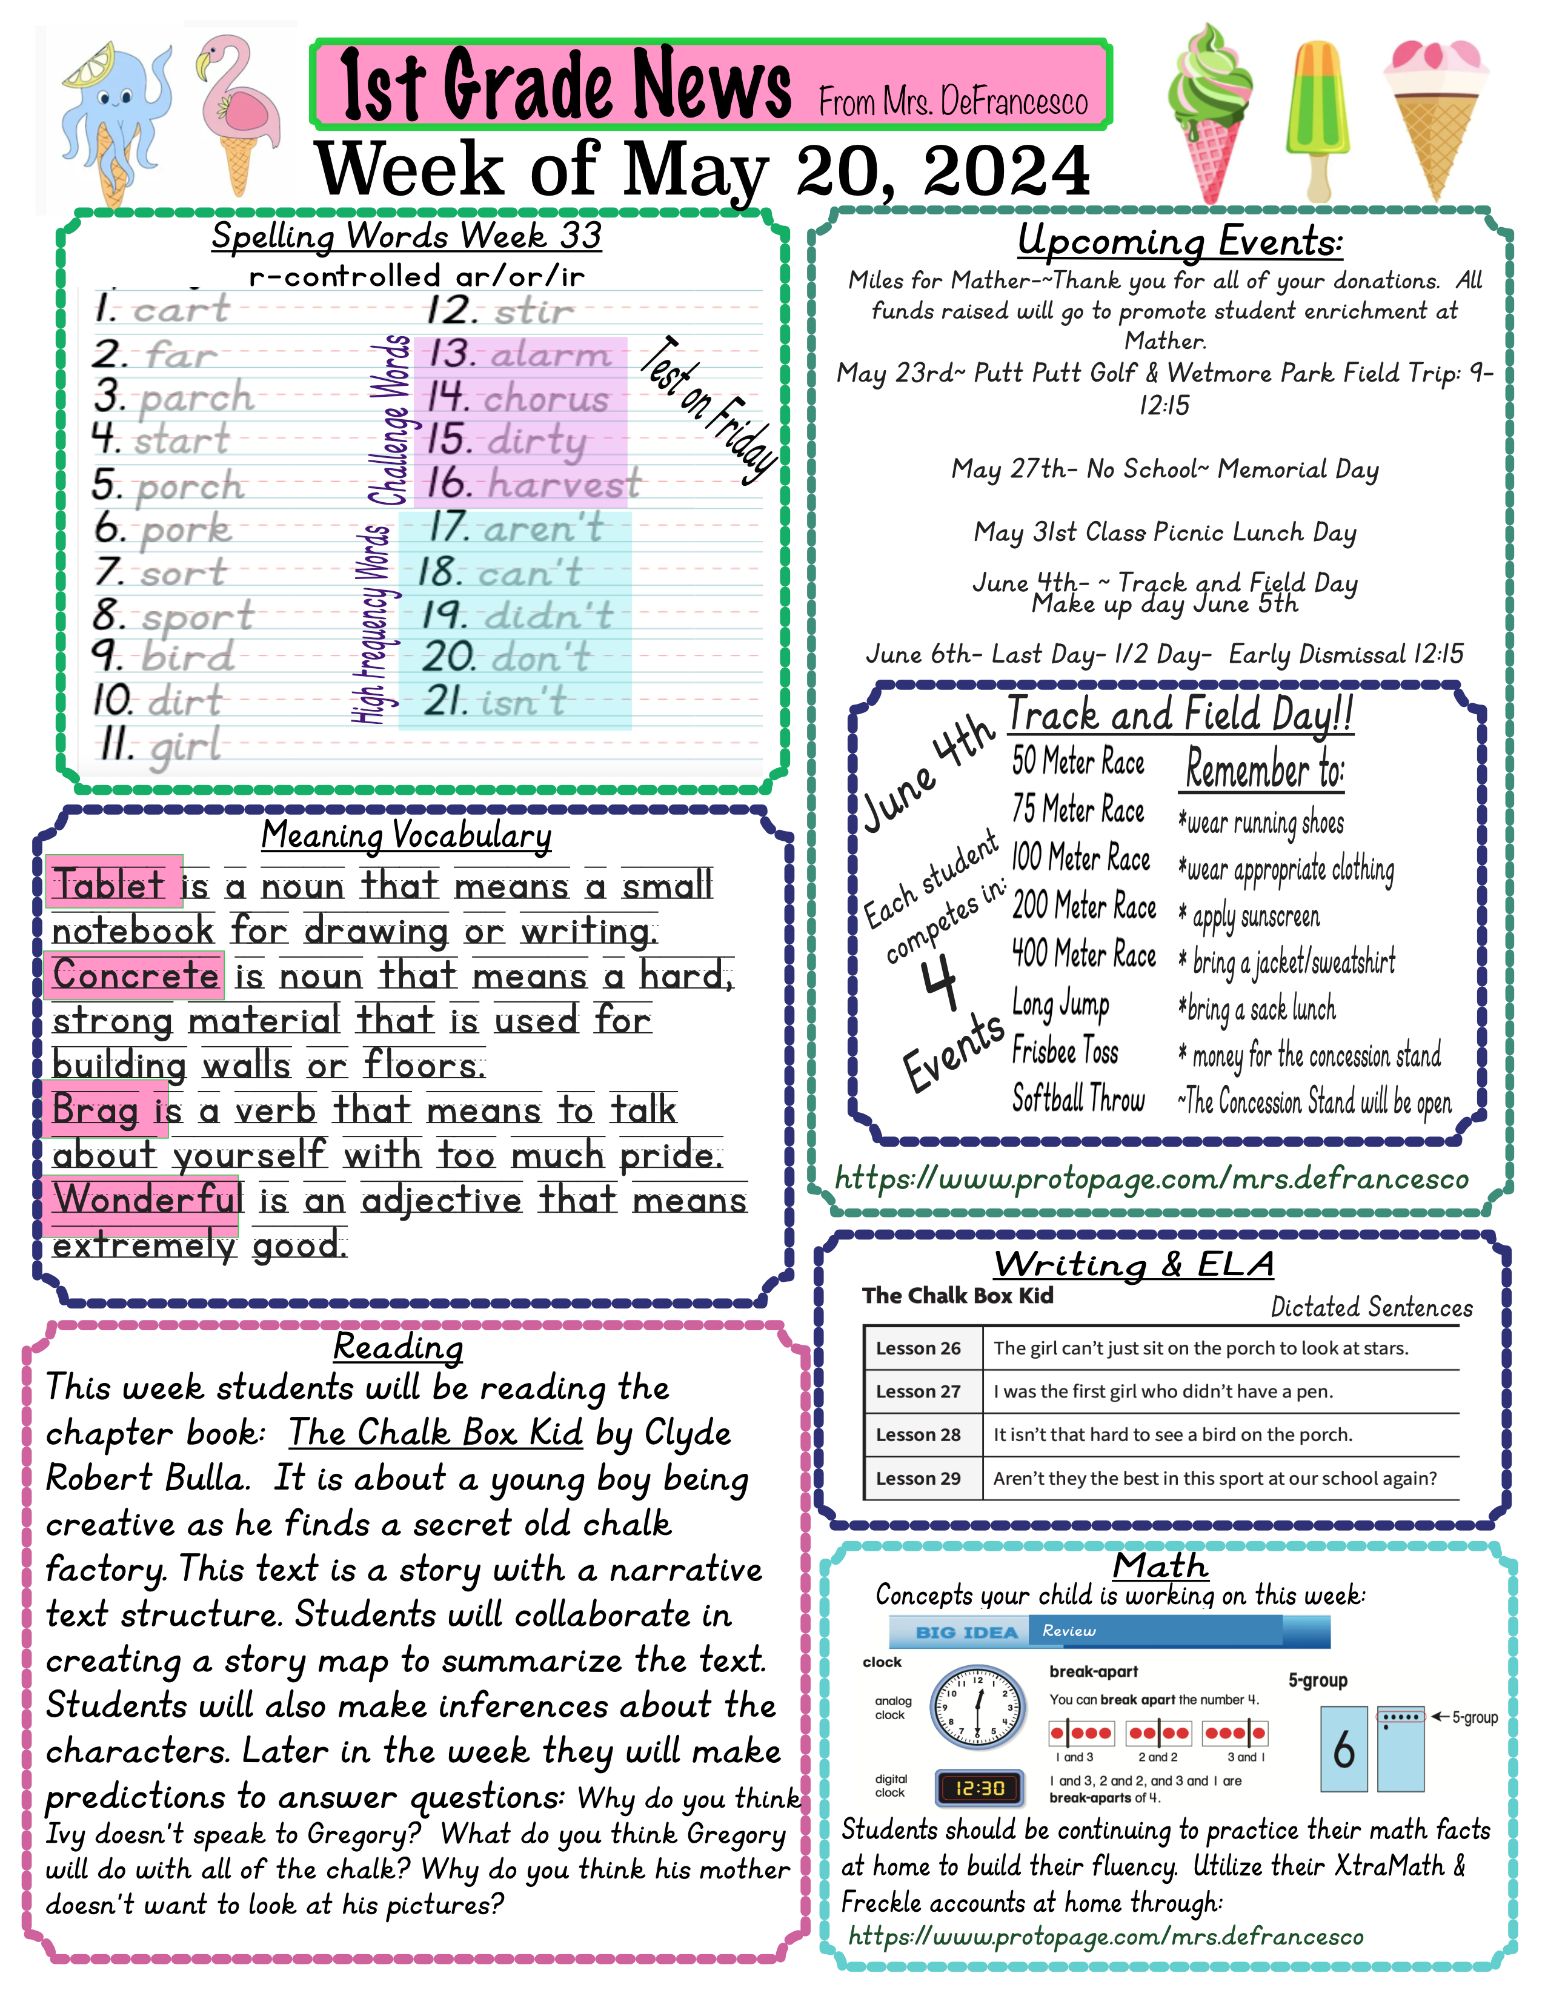 1st Grade News From Mrs. DeFrancesco
Week of May 20, 2024
Spelling Words Week 33
r-controlled ar/or/ir
1. cart
2. far
3. parch
4. start
5. porch
6. pork
7. sort
8. sport
9. bird
10. dirt
11. girl
12. stir
Challenge Words
13. alarm
14. chorus
15. dirty
16. harvest
High Frequency Words
17. aren't
18. can't
19. didn't
20. don't
21. isn't
Test on Friday
Meaning Vocabulary
Tablet is a noun that means a small
notebook for drawing or writing.
Concrete is noun that means a hard,
strong material that is used for
building walls or floors.
Brag is a verb that means to talk
about yourself with too much pride.
Wonderful is an adjective that means
extremely good.
Reading
This week students will be reading the
chapter book: The Chalk Box Kid by Clyde
Robert Bulla. It is about a young boy being
creative as he finds a secret old chalk
factory. This text is a story with a narrative
text structure. Students will collaborate in
creating a story map to summarize the text.
Students will also make inferences about the
characters. Later in the week they will make
predictions to answer questions: Why do you think
Ivy doesn't speak to Gregory? What do you think Gregory
will do with all of the chalk? Why do you think his mother
doesn't want to look at his pictures?
Upcoming Events:
Miles for Mather-~Thank you for all of your donations. All
funds raised will go to promote student enrichment at
Mather.
May 23rd~ Putt Putt Golf & Wetmore Park Field Trip: 9-
12:15
May 27th- No School~ Memorial Day
May 31st Class Picnic Lunch Day
June 4th- ~ Track and Field Day
Make up day June 5th
June 6th- Last Day- 1/2 Day- Early Dismissal 12:15
June 4th
Each student
competes in:
4
Events
Track and Field Day!!
50 Meter Race
75 Meter Race
100 Meter Race
200 Meter Race
400 Meter Race
Long Jump
Frisbee Toss
Softball Throw
Remember to:
*wear running shoes
*wear appropriate clothing
* apply sunscreen
* bring a jacket/sweatshirt
*bring a sack lunch
* money for the concession stand
~The Concession Stand will be open
https://www.protopage.com/mrs.defrancesco
Writing & ELA
The Chalk Box Kid
Dictated Sentences
Lesson 26 The girl can't just sit on the porch to look at stars.
Lesson 27 I was the first girl who didn't have a pen.
Lesson 28 It isn't that hard to see a bird on the porch.
Lesson 29 Aren't they the best in this sport at our school again?
Math
Concepts your child is working on this week:
BIG IDEA Review
clock
analog
clock
12 1 2 3 4 5 6 7 8 9 10 11
digital
clock
12:30
break-apart
You can break apart the number 4.
1 and 3 2 and 2 3 and 1
1 and 3, 2 and 2, and 3 and 1 are
break-aparts of 4.
5-group
6
5-group
Students should be continuing to practice their math facts
at home to build their fluency. Utilize their XtraMath &
Freckle accounts at home through:
https://www.protopage.com/mrs.defrancesco